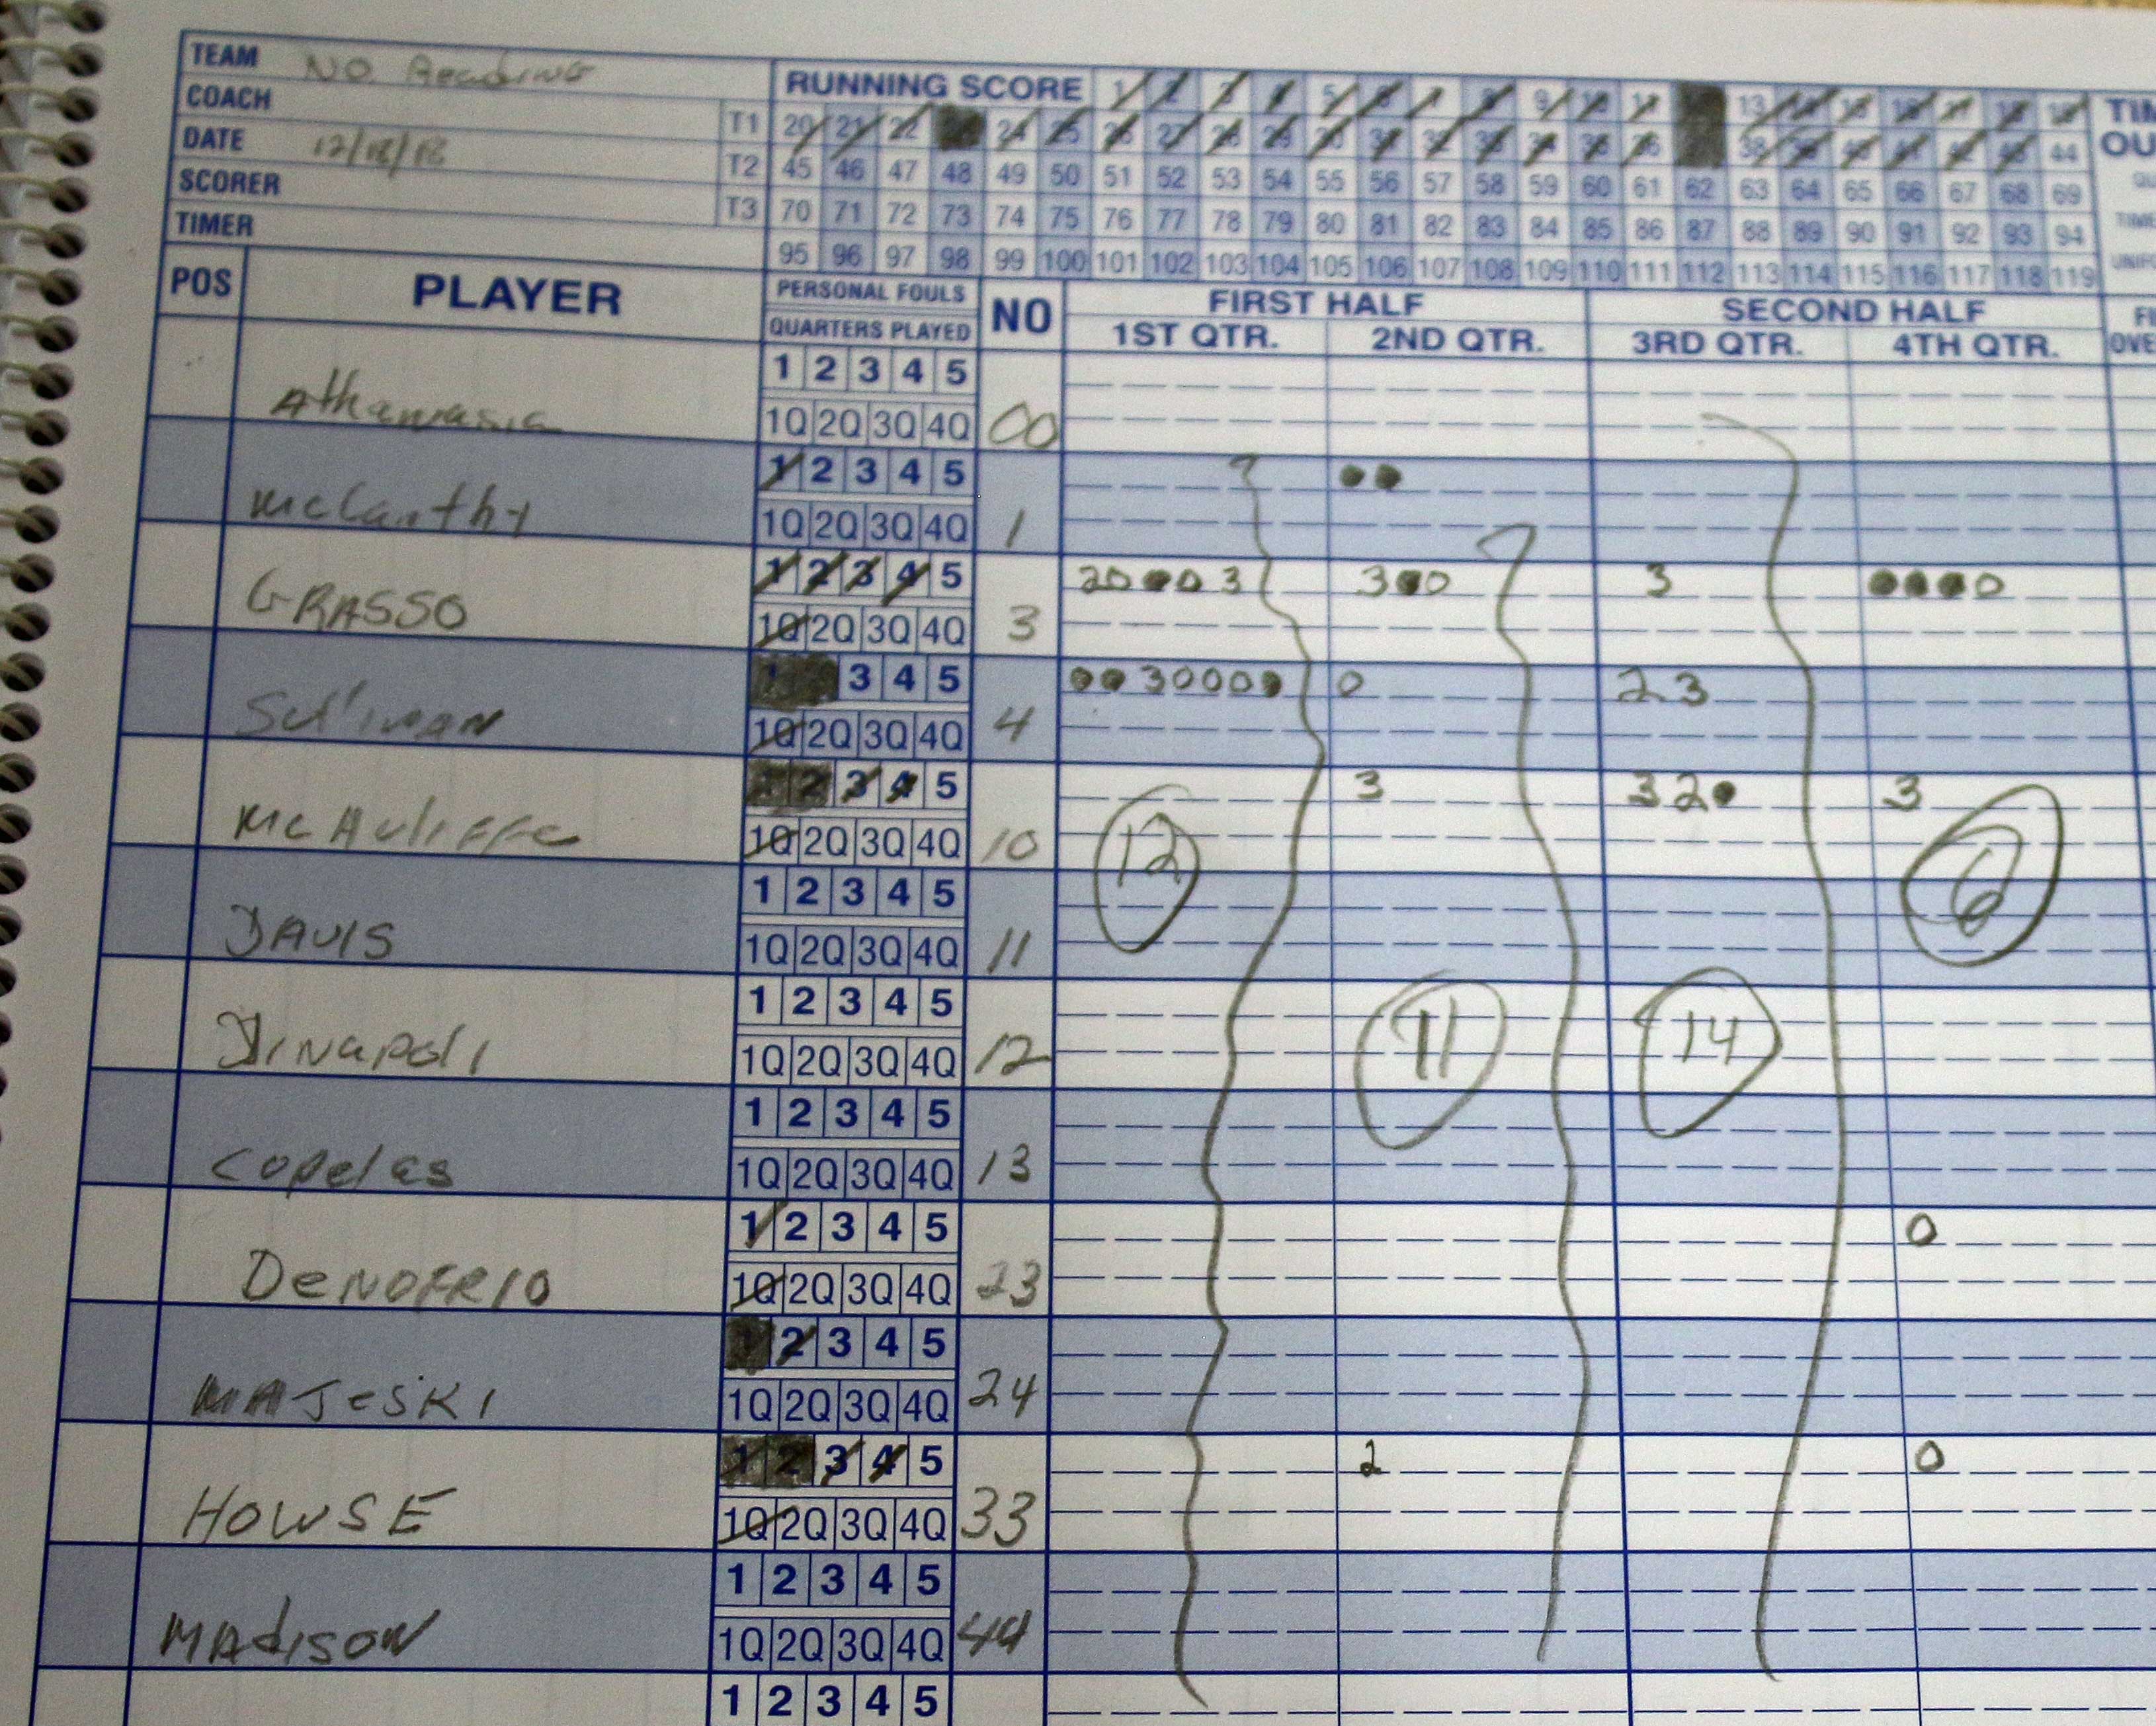 TEAM NO Reading RUNNING SCORE 1 2 3 4 5 6 7 8 9 10 11 13 14 15 16 17 18 19 TIM
COACH T1 20 21 22 24 25 26 27 28 29 30 31 32 33 34 35 36 38 39 40 41 42 43 44 OU
DATE 12/18/18 T2 45 46 47 48 49 50 51 52 53 54 55 56 57 58 59 60 61 62 63 64 65 66 67 68 69
SCORER T3 70 71 72 73 74 75 76 77 78 79 80 81 82 83 84 85 86 87 88 89 90 91 92 93 94
TIMER 95 96 97 98 99 100 101 102 103 104 105 106 107 108 109 110 111 112 113 114 115 116 117 118 119
POS PLAYER PERSONAL FOULS NO FIRST HALF SECOND HALF
QUARTERS PLAYED 1ST QTR. 2ND QTR. 3RD QTR. 4TH QTR. OVE
1 2 3 4 5
Athanasia 1Q 2Q 3Q 4Q 00
1 2 3 4 5
McCarthy 1Q 2Q 3Q 4Q 1
1 2 3 4 5 20 0 3 3 0 3 0
GRASSO 1Q 2Q 3Q 4Q 3
3 4 5 3000 0 2 3
1Q 2Q 3Q 4Q 4
1 2 3 4 5 3 3 2 3
McAuliffe 1Q 2Q 3Q 4Q 10 12 6
1 2 3 4 5
DAVIS 1Q 2Q 3Q 4Q 11
1 2 3 4 5
Dinapoli 1Q 2Q 3Q 4Q 12 11 14
1 2 3 4 5
Copelas 1Q 2Q 3Q 4Q 13
1 2 3 4 5 0
DeNOFRIO 1Q 2Q 3Q 4Q 23
1 2 3 4 5
MAJeSKI 1Q 2Q 3Q 4Q 24
1 2 3 4 5 2 0
HOWSE 1Q 2Q 3Q 4Q 33
1 2 3 4 5
MAdisoN 1Q 2Q 3Q 4Q 44
1 2 3 4 5